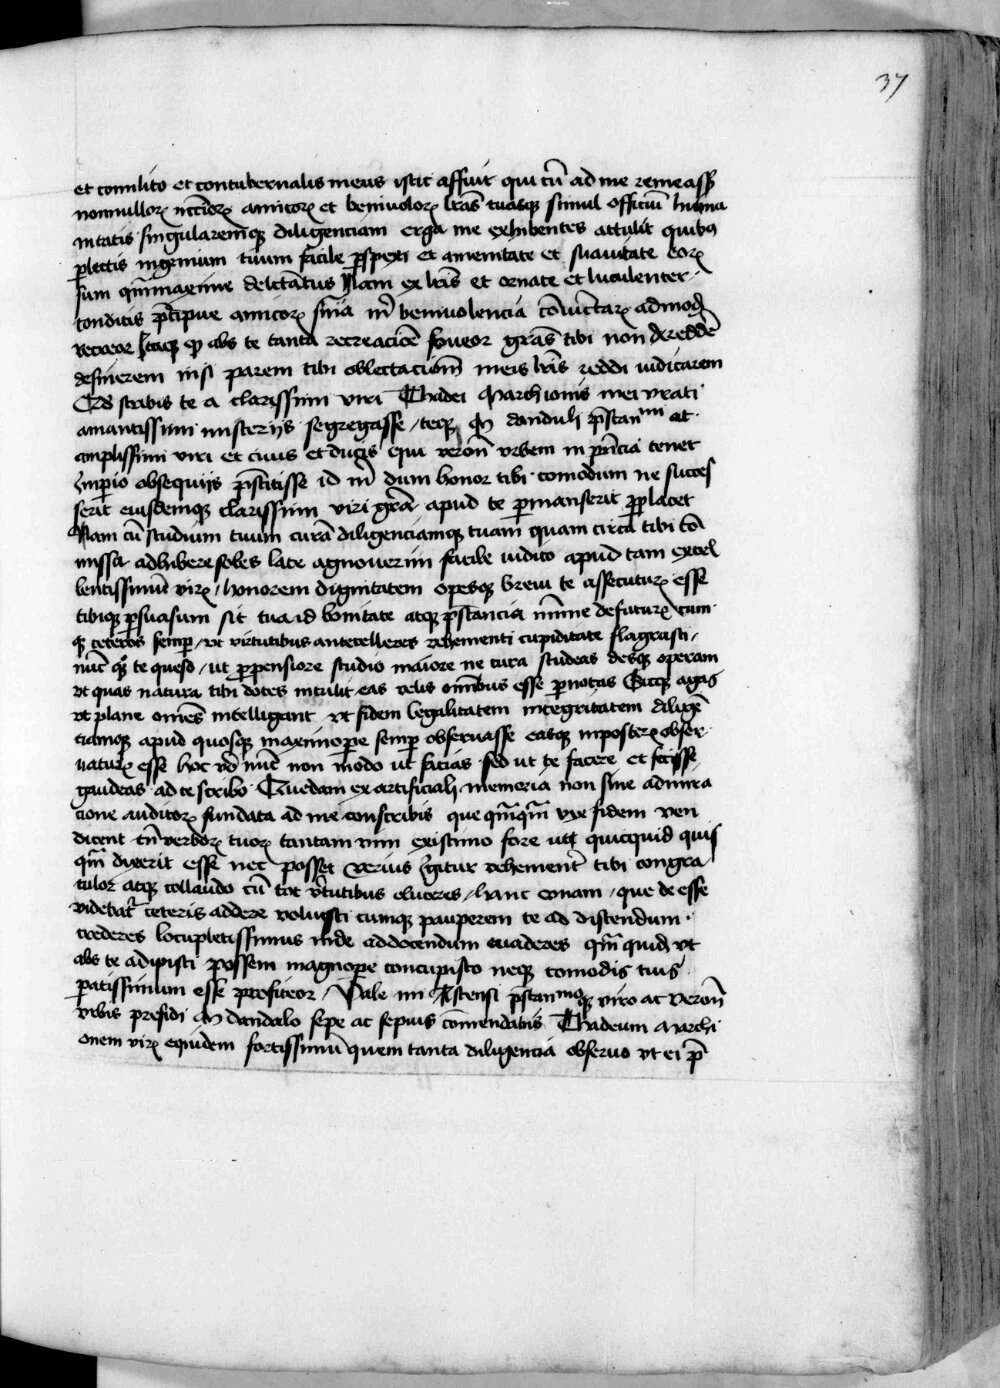 37
et comilito et contubernalis meus istic affuit qui cū ad me remeassꝫ
nonnullorꝫ nrōrorꝫ amicorꝫ et benivolorꝫ lrās tuasqꝫ simul officiū huma
nitatis singularemqꝫ diligenciam erga me exhibentes attulit quibus
ꝑlectis ingenium tuum facile ꝑspexi et amenitate et suavitate eorꝫ
sum qm̄maxime delectatus Nam ex lrīs et ornate et luculenter
conditis p̄cipue amicorꝫ m̄ benivolencia admodꝫ
recreor Itaqꝫ qꝫ abs te tanta recreacioē foveor grās tibi non reddē
desinerem nisi parem tibi oblectacionē meis lrīs reddi iudicarem
scribis te a clarissimi viri Thadei Marchionis mei
amantissimi misterijs segregasse / teqꝫ M danduli p̄stanmi at
amplissimi viri et civis et ducis qui veronē urbem in ꝓvīcia tenet
Imperio obsequijs p̄stitisse id m̄ dum honor tibi comodum ne succes
serit eiusdemqꝫ clarissimi viri grā apud te ꝑmanserit ꝑplacet
Nam cū studium tuum curā diligenciamqꝫ tuam quam circa tibi cō
missa adhibere soles late agnoverim facile iudico apud tam excel
lentissimū virꝫ / honorem dignitatem opesqꝫ brevi te assecuturꝫ esse
tibiqꝫ ꝑsuasum sit tua id bonitate atqꝫ p̄stancia mīme defuturꝫ cum
qꝫ ceteros semꝑ / ut virtutibus antecelleres vehementi cupiditate flagrasti /
nūc te queso / ut ꝓpensiore studio maiore ne cura studeas desqꝫ operam
ut quas natura tibi dotes intulit eas velis omībus esse ꝑnotas Sicqꝫ agas
ut plane omēs intelligant ut fidem legalitatem integritatem diligē
ciamqꝫ apud quosqꝫ maximoꝑe semꝑ observasse easqꝫ inposterꝫ obser
vaturꝫ esse hoc vō nūc non modo ut facias sed ut te facere et fecisse
gaudeas ad te scribo Quedam ex artificiali memoria non sine admira
cione auditorꝫ fundata ad me conscribis que qm̄qm̄ vix fidem ven
dicent tn̄ verborꝫ tuorꝫ tantam vim existimo fore ut quicquid quis
qm̄ dixerit esse nec posset verius Igitur vehementer tibi congra
tulor atqꝫ collaudo cū tot vtutibus / hanc / que de esse
videbatr̄ ceteris addere voluisti cumqꝫ pauperem te ad discendum
crederes locupletissimus inde ad docendum evaderes qm̄ quidꝫ ut
abs te adipisci possem magnopere concupisco neqꝫ comodis tuis
ꝑatissimum esse profiteor / Vale mi p̄stanmoqꝫ viro ac veronē
urbis presidi M dandalo sepe ac sepius cōmendatis Thadeum Marchi
onem virꝫ equidem fortissimū quem tanta diligencia observo ut ei p̄